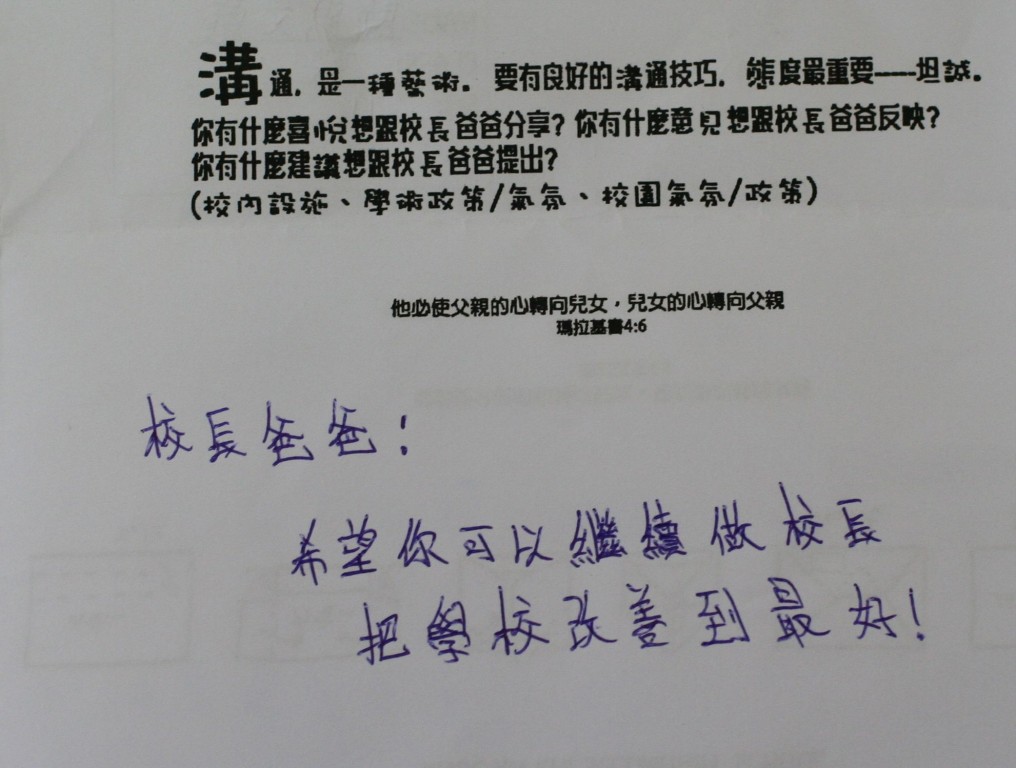 溝通，是一種藝術。要有良好的溝通技巧，態度最重要-----坦誠。
你有什麼喜悅想跟校長爸爸分享？你有什麼意見想跟校長爸爸反映？
你有什麼建議想跟校長爸爸提出？
(校內設施、學術政策/氣氛、校園氣氛/政策)
他必使父親的心轉向兒女，兒女的心轉向父親
瑪拉基書4:6
校長爸爸：
希望你可以繼續做校長
把學校改善到最好！